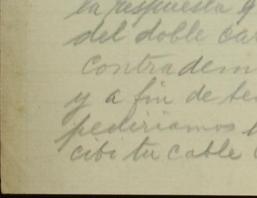 la respuesta q
del doble car
contradem
y a fin de te
pediriamos l
cibi tu cable